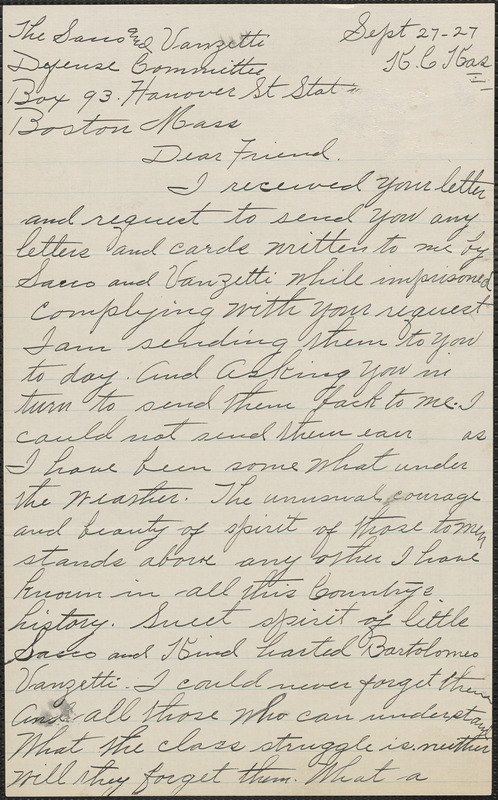 The Sacco and Vanzetti Sept 27-27
Defense Committee K.C Kas
Box 93. Hanover St Stat
Boston Mass
Dear Friend.
I received your letter
and request to send you any
letters and cards written to me by
Sacco and Vanzetti while imprisoned
complying with your request
I am sending them to you
to day. And Asking you in
turn to send them back to me. I
could not send them as
I have been some what under
the weather. The unusual courage
and beauty of spirit of those to men
stands above any other I have
known in all this Countrys
history. Sweet spirit of little
Sacco and Kind harted Bartolomeo
Vanzetti. I could never forget them
And all those who can understand
What the class struggle is. neither
will they forget them. What a